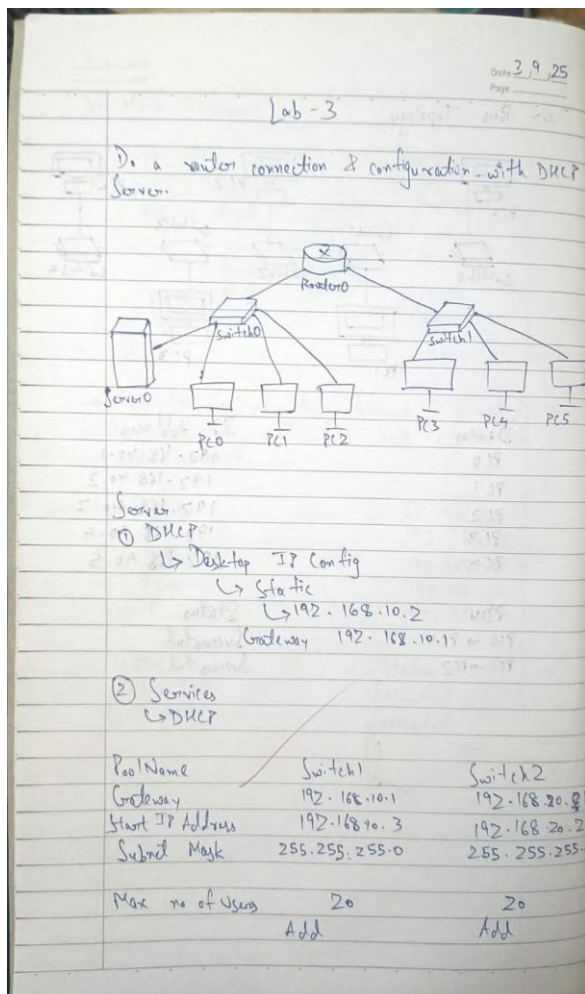 Date 3, 9, 25
Page
Lab - 3
Do a router connection & configuration with DHCP
Server.
Router0
Switch0
Switch1
Server0
PC0 PC1 PC2 PC3 PC4 PC5
Server
① DHCP
↳ Desktop IP Config
↳ Static
↳ 192.168.10.2
Gateway 192.168.10.1
② Services
↳ DHCP
Pool Name Switch1 Switch2
Gateway 192.168.10.1 192.168.20.
Start IP Address 192.168.10.3 192.168.20.2
Subnet Mask 255.255.255.0 255.255.255.
Max no of Users 20 20
Add Add